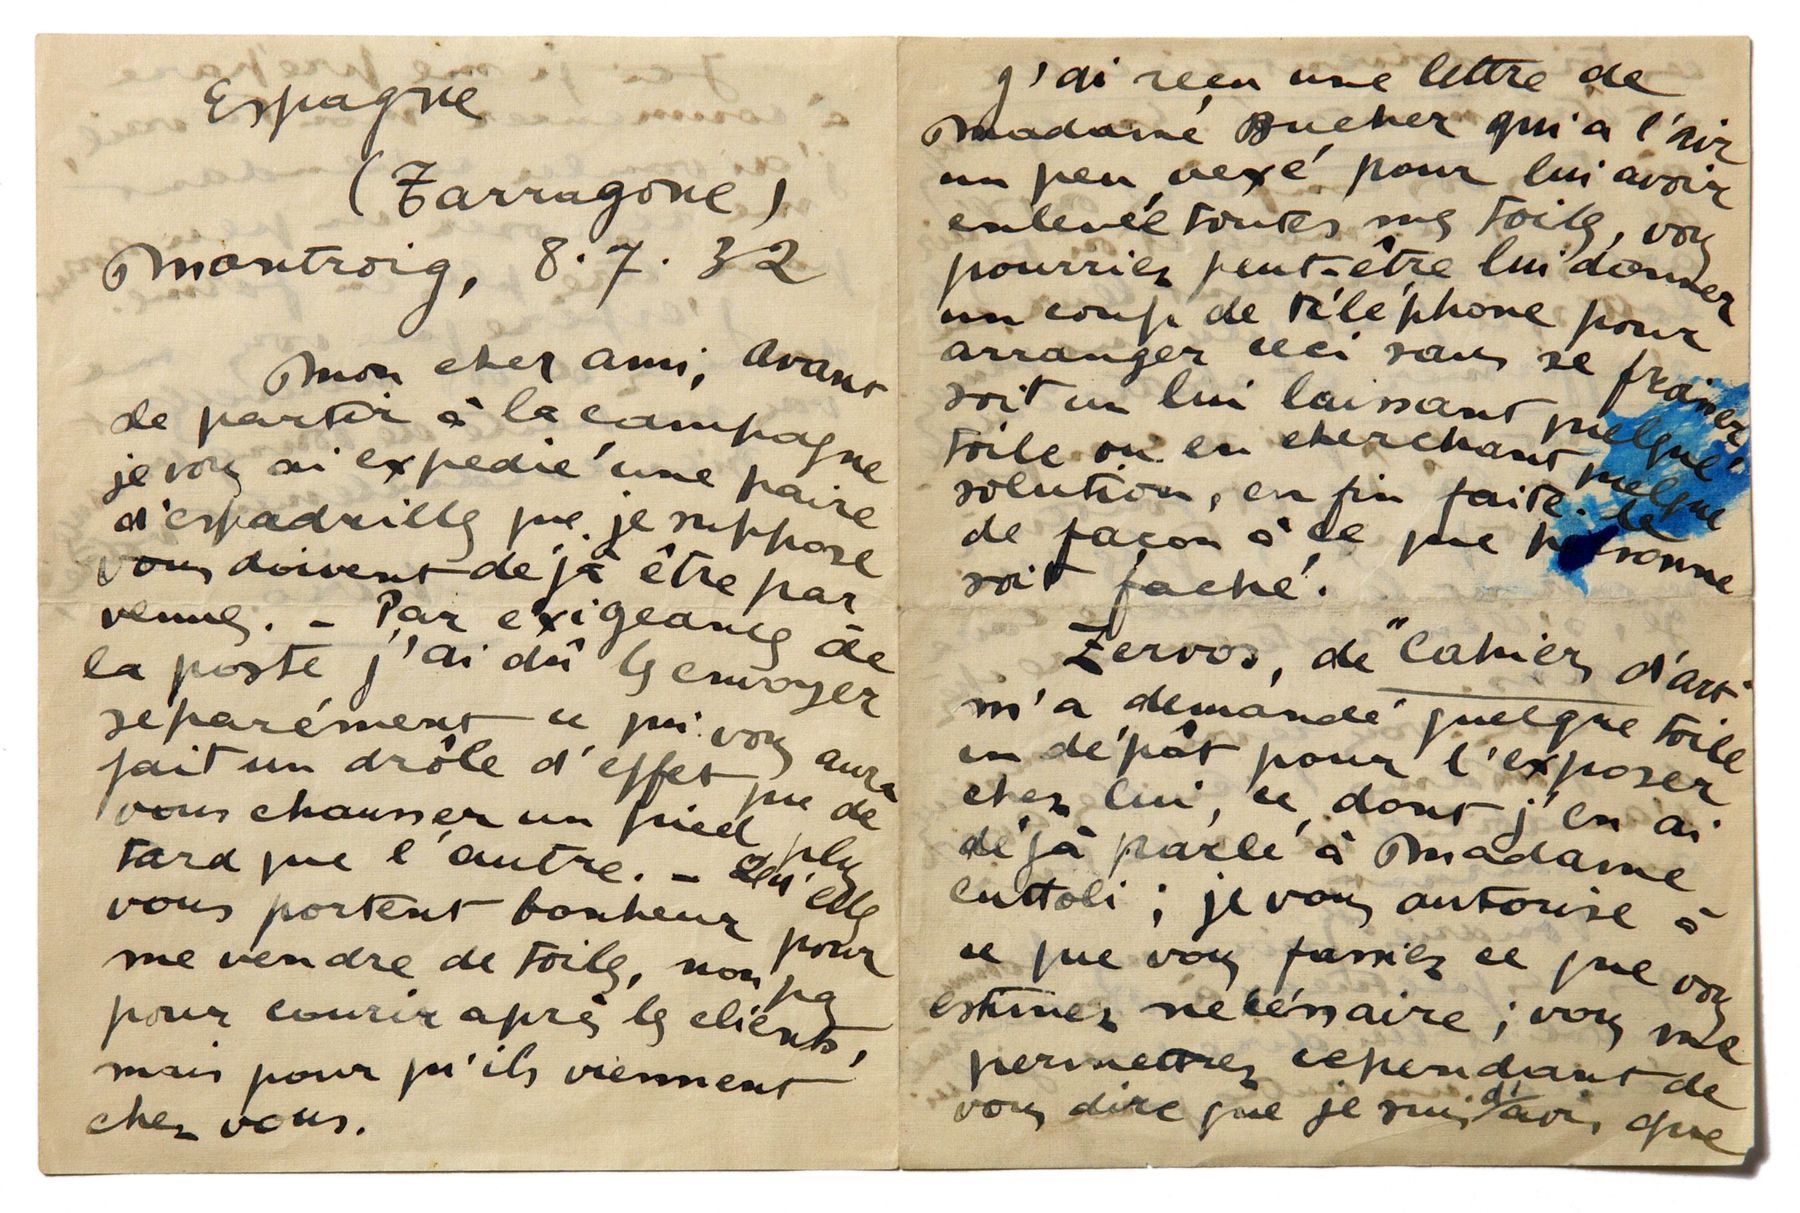 Espagne
(Tarragone)
Montroig, 8.7.32
Mon cher ami, avant
de partir à la campagne
je vous ai expedié une paire
d'espadrilles que je suppose
vous doivent déjà être par
venues. – Par exigeances de
la poste j'ai dû les envoyer
separément ce qui vous aura
fait un drôle d'effet que de
vous chausser un pied plus
tard que l'autre. – Qu'elles
vous portent bonheur pour
me vendre de toiles, non pas
pour courir après les clients,
mais pour qu'ils viennent
chez vous.
J'ai reçu une lettre de
Madame Bucher qui a l'air
un peu vexé pour lui avoir
enlevée toutes mes toiles, vous
pourriez peut-être lui donner
un coup de téléphone pour
arranger ceci sans se fraiser
soit en lui laissant quelque
toile ou en cherchant quelque
solution, enfin faite. le
de façon à ce que personne
soit faché.
Zervos, de "Cahiers d'art"
m'a demandé quelque toile
en dépôt pour l'exposer
chez lui, ce dont j'en ai
déjà parlé à Madame
Cuttoli ; je vous autorise à
ce que vous fassiez ce que vous
estimez necéssaire ; vous me
permettrez cependant de
vous dire que je suis d'avis que